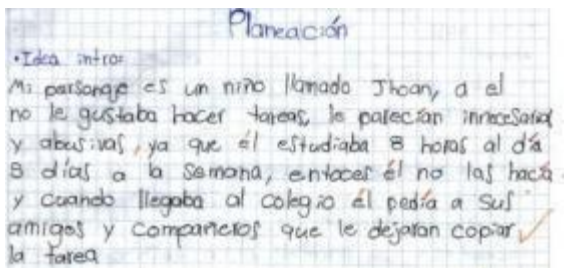 Planeación
•Idea intro:
Mi parsonaje es un niño llamado Jhoan, a el
no le gustaba hacer tareas, le parecían innecesarias
y abusivas, ya que él estudiaba 8 horas al día
8 días a la semana, entoces él no las hacía
y cuando llegaba al colegio él pedía a sus
amigos y compañeros que le dejaran copiar
la tarea